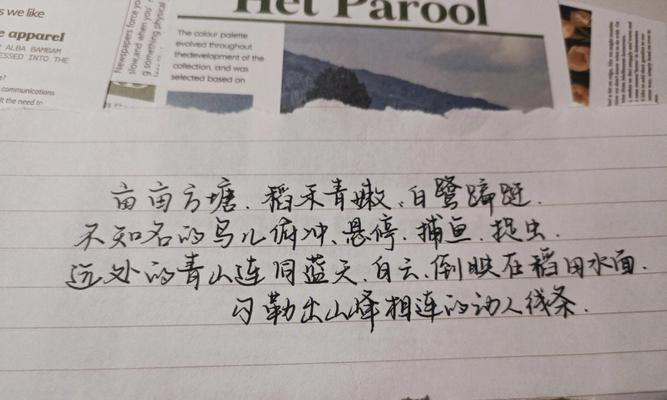 s we like
e apparel
ALBA BAMBAM
ESSED INTO THE
s?
communications
lt the need to
Newspapers force you
slow, and when you
g something physical
Het Parool
The colour palette
evolved throughout
the development of the
collection, and was
selected based on
亩亩方塘、稻禾青嫩、白鹭蹁跹.
不知名的鸟儿俯冲、悬停、捕鱼、捉虫.
远处的青山连同蓝天、白云、倒映在稻田水面.
勾勒出山峰相连的动人线条.